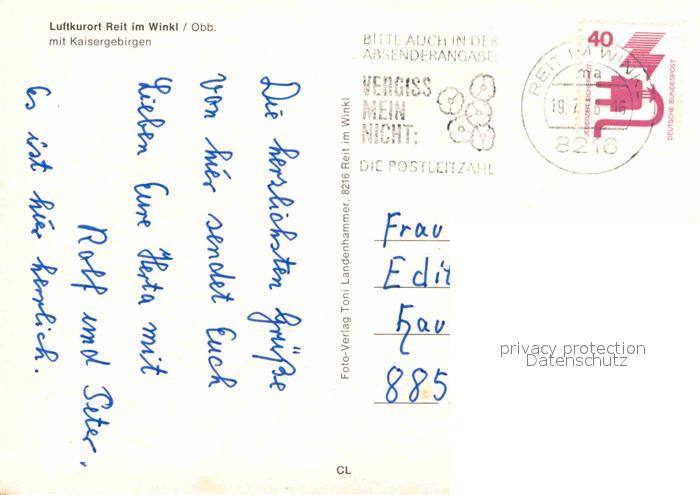 Luftkurort Reit im Winkl / Obb.
mit Kaisergebirgen
Die herzlichsten Grüße
von hier sendet Euch
Lieben Eure Herta mit
Rolf und Peter.
Es ist hier herrlich.
Foto-Verlag Toni Landenhammer, 8216 Reit im Winkl
CL
BITTE AUCH IN DER
ABSENDERANGABE
VERGISS
MEIN
NICHT:
DIE POSTLEITZAHL
REIT IM WINKL
ma
8216
40
DEUTSCHE BUNDESPOST
Frau
Edit
Hau
885
privacy protection
Datenschutz